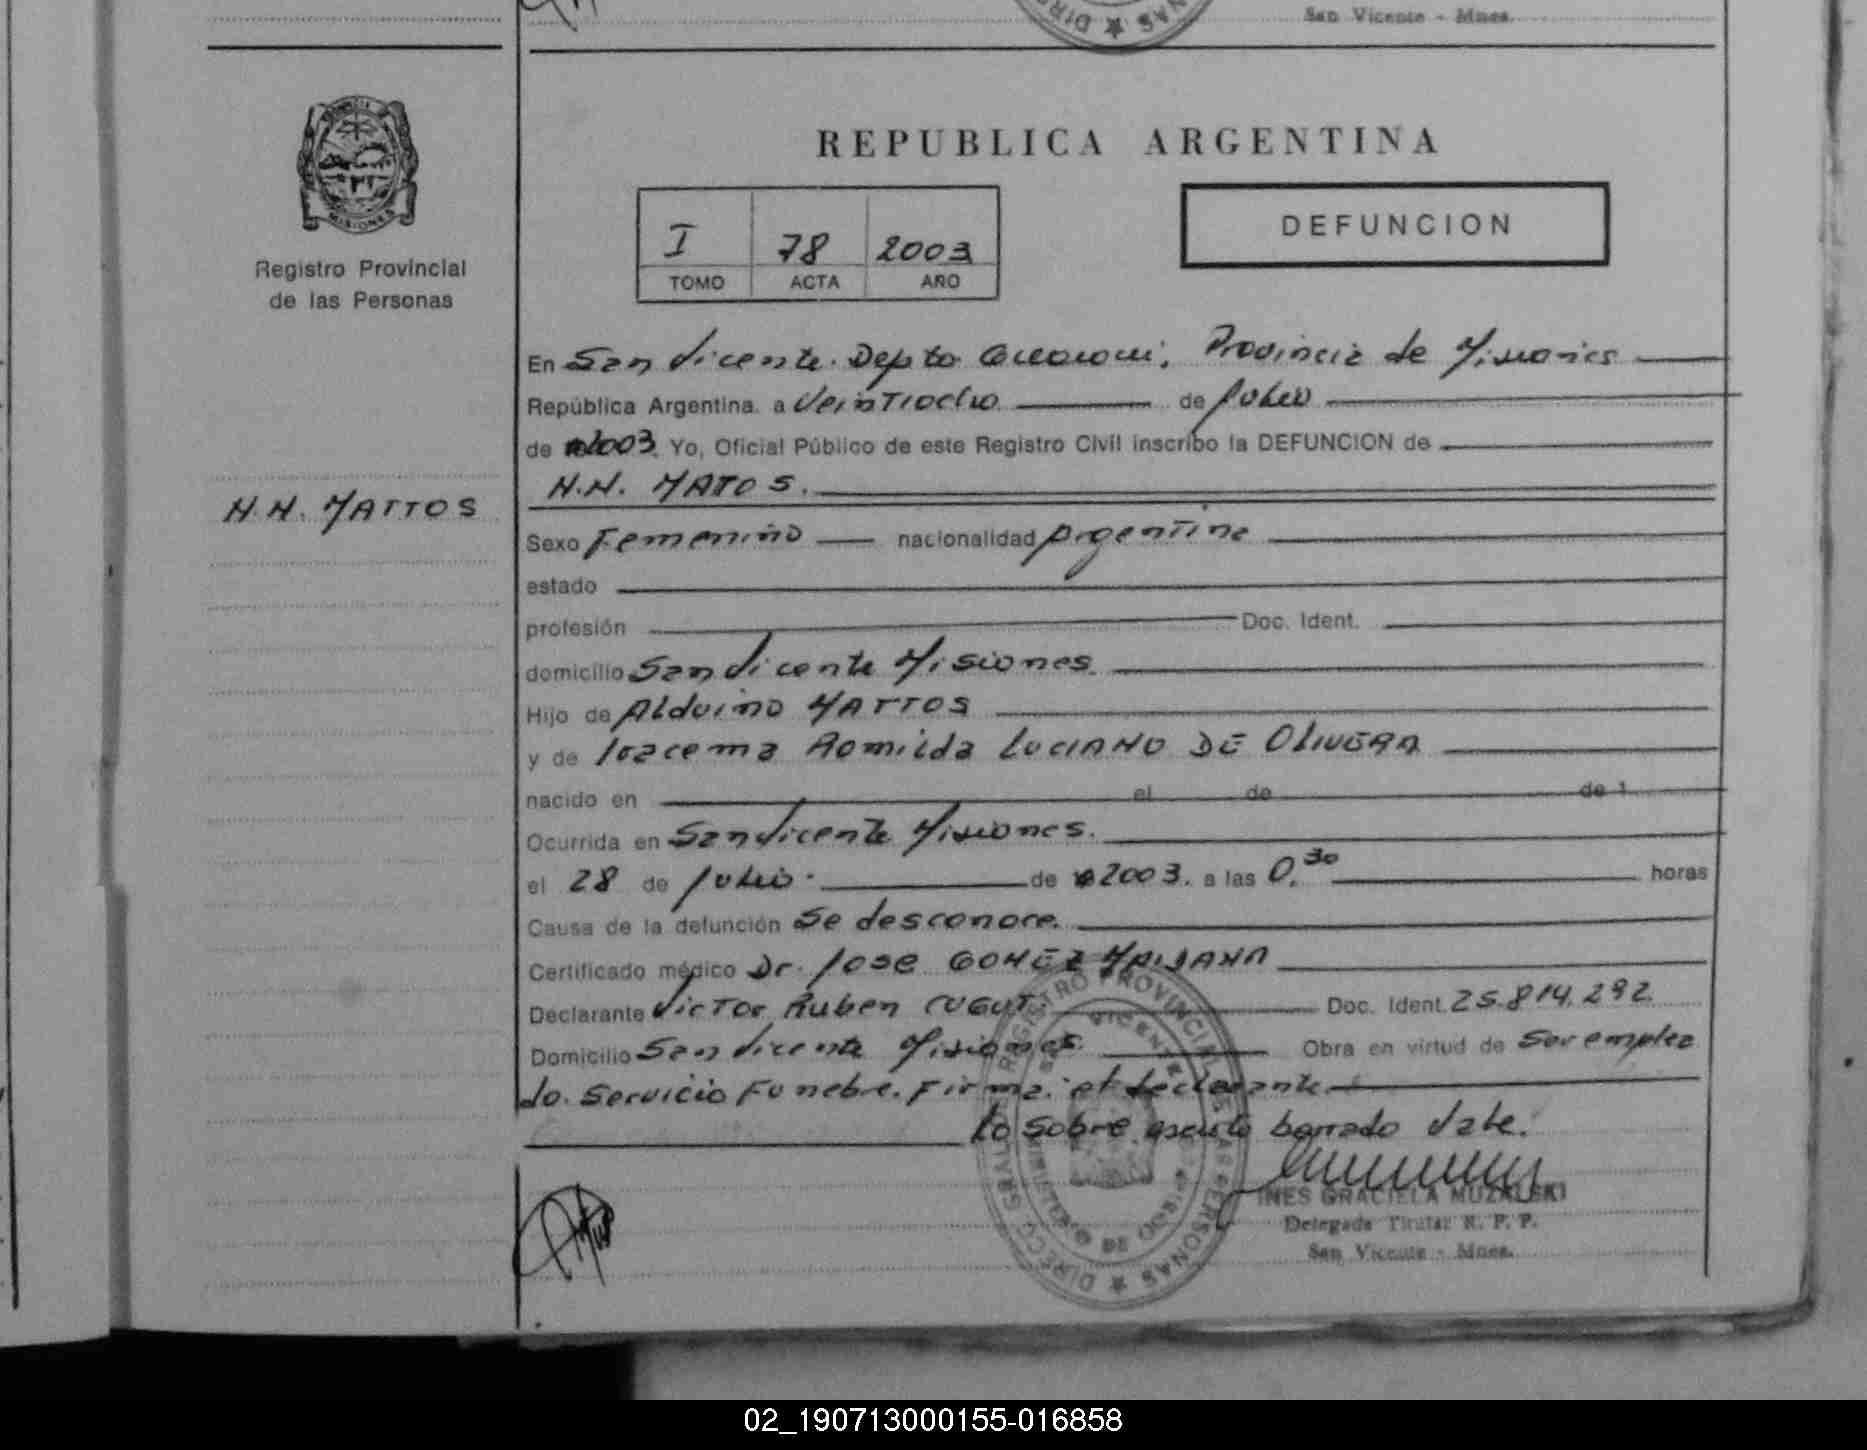 San Vicente - Mnes.
REPUBLICA ARGENTINA
MISIONES
I 78 2003
TOMO ACTA AÑO
DEFUNCION
Registro Provincial
de las Personas
En San Vicente. Depto Guaraní, Provincia de Misiones
República Argentina, a Veintiocho de Julio
de 2003. Yo, Oficial Público de este Registro Civil inscribo la DEFUNCION de
N.N. MATOS.
N.N. MATTOS
Sexo Femenino nacionalidad Argentina
estado
profesión Doc. Ident.
domicilio San Vicente Misiones.
Hijo de Alduino MATTOS
y de Romilda LUCIANO DE OLIVERA
nacido en el de de 1
Ocurrida en San Vicente Misiones.
el 28 de Julio. de 2003. a las 0.30 horas
Causa de la defunción Se desconoce.
Certificado médico Dr. Jose GOMEZ
Declarante Victor Ruben Doc. Ident. 25.814.292
Domicilio San Vicente Misiones. Obra en virtud de Ser emplea
do. Servicio Funebre. Firma: el declarante.
Lo Sobre escrito borrado Vale.
INES GRACIELA MUZALSKI
Delegada Titular R. P. P.
San Vicente - Mnes.
02_190713000155-016858